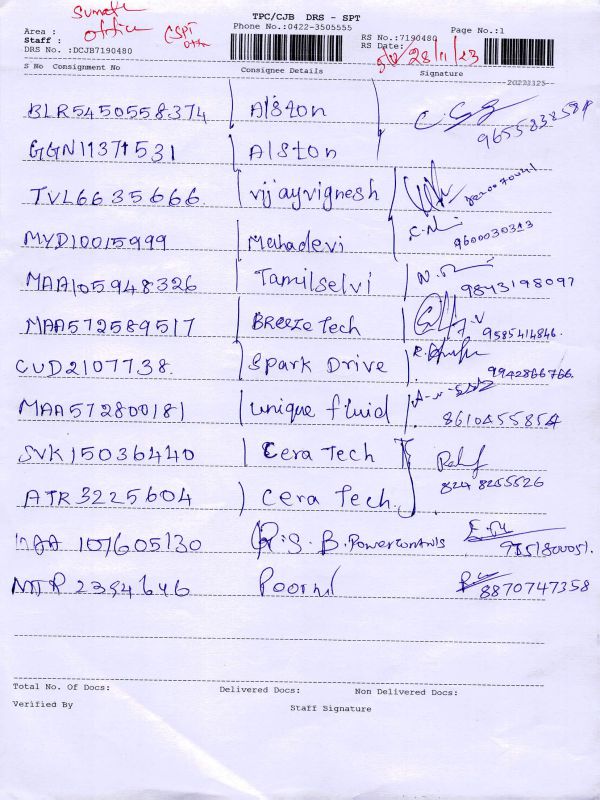 TPC/CJB DRS - SPT
Phone No.:0422-3505555
Area : Sumathi office CSPT
Staff :
DRS No. :DCJB7190480
RS No.:7190480 Page No.:1
RS Date: 28/11/23
S No Consignment No Consignee Details Signature
20223325
BLR5450558374 Alston 9655838587
GGN11371531 Alston
TVL6635666. vijayvignesh
MYD10015999 Mahadevi C.N 9600030313
MAA105948326 Tamilselvi 9843198097
MAA572589517 Breeze Tech 9585414846.
CUD2107738. Spark Drive 9942866766.
MAA572800181 unique fluid 8610455854
SVK15036440 Cera Tech
ATR3225604 Cera Tech. 8248255526
MAA 107605130 R.S.B.
MTP 2394646 8870747358
Total No. Of Docs: Delivered Docs: Non Delivered Docs:
Verified By Staff Signature